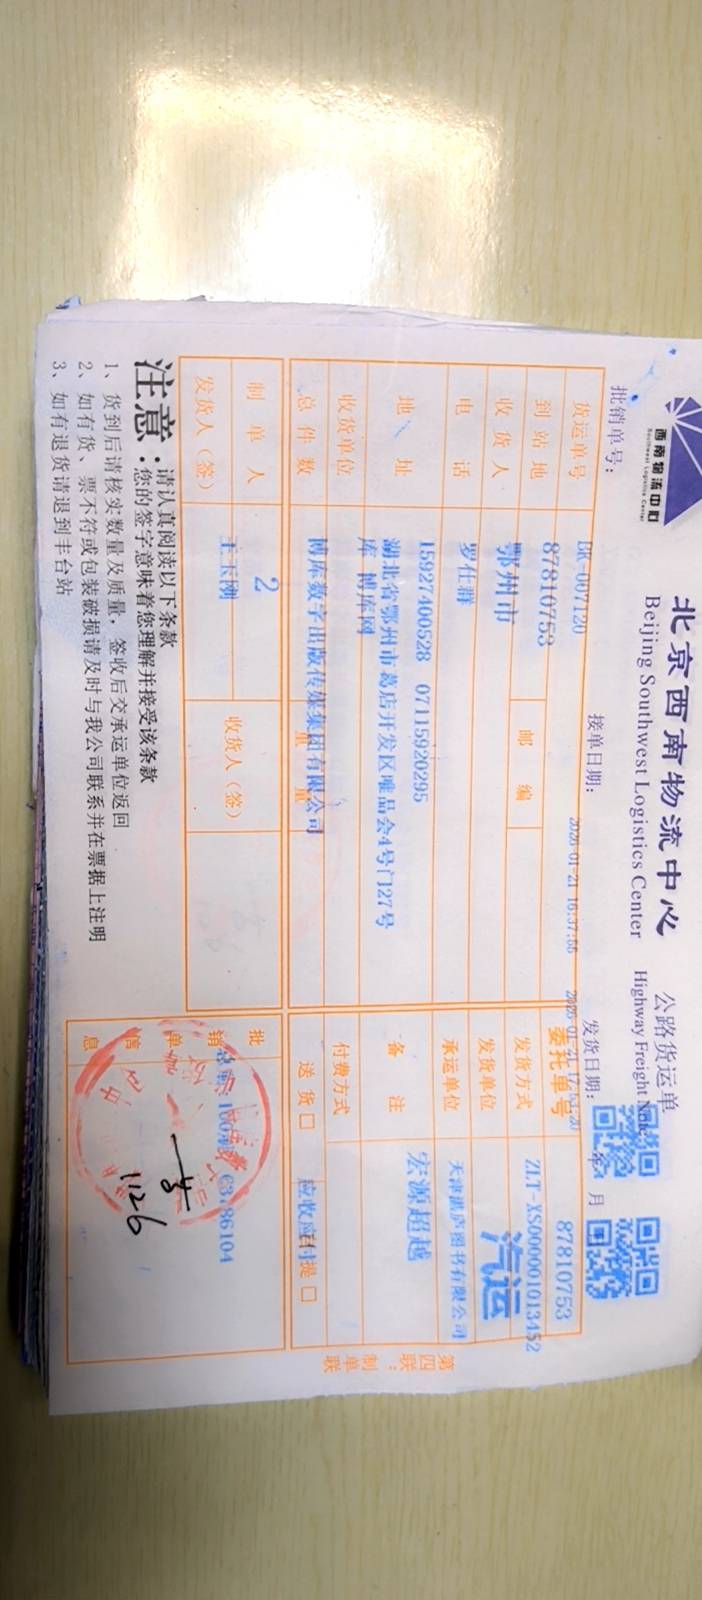 西南物流中心
Southwest Logistics Center
北京西南物流中心 公路货运单
Beijing Southwest Logistics Center Highway Freight Note
批销单号: 接单日期: 发货日期: 年 月
BK-007120 2026-01-21 16:37:56
货运单号 87810753 委托单号 87810753
到站地 鄂州市 邮编 发货方式 ZLT-XS000001013452
汽运
收货人 罗仕群 发货单位
电话 15927400528 07115920295 承运单位 天津湛庐图书有限公司
地址 湖北省鄂州市葛店开发区唯品会4号门27号 备注 宏源超越
库 博库网
收货单位 博库数字出版传媒集团有限公司 付费方式
总件数 2 重量 送货 □ 应收应付提 □
制单人 王玉刚 收货人(签)
发货人(签)
批销单信息 63786104
1.26
第四联:制单联
注意: 请认真阅读以下条款
您的签字意味着您理解并接受该条款
1、货到后请核实数量及质量,签收后交承运单位返回
2、如有货、票不符或包装破损请及时与我公司联系并在票据上注明
3、如有退货请退到丰台站